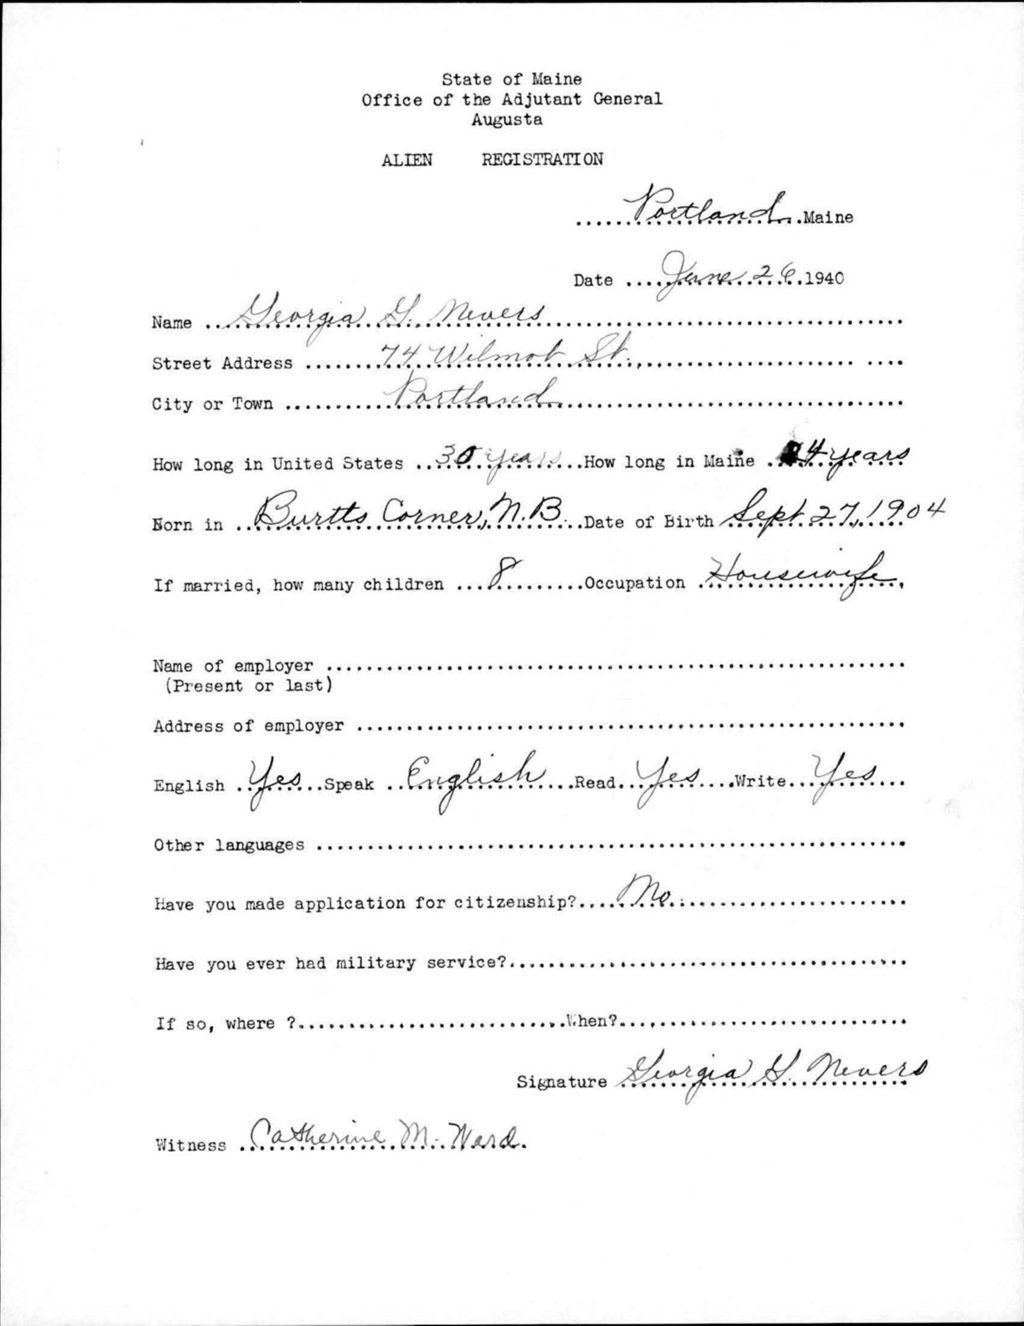 State of Maine
Office of the Adjutant General
Augusta
ALIEN REGISTRATION
......Portland..Maine
Date ....June 26.1940
Name ..Georgia G. Nevers..............................
Street Address ......74 Wilmot St.,.................... ....
City or Town ..........Portland..............................
How long in United States ..30 years...How long in Maine .24 years
Born in ..Burtts Corner, N.B...Date of Birth Sept. 27, 1904
If married, how many children ...8.........Occupation .Housewife.
Name of employer ............................................................
(Present or last)
Address of employer .......................................................
English .Yes..Speak ..English...Read..Yes....Write...Yes...
Other languages ............................................................
Have you made application for citizenship?....No........................
Have you ever had military service?........................................
If so, where ?...........................When?.............................
Signature Georgia G. Nevers
Witness .Catherine M. Ward.